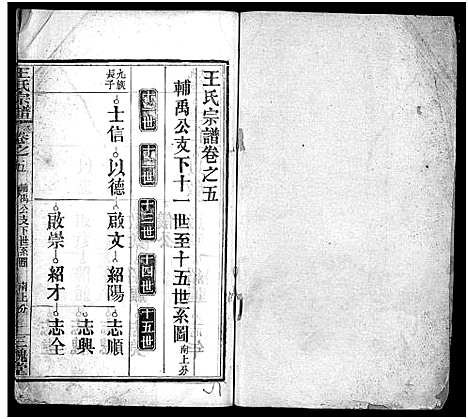 王氏宗譜卷之五
輔禹公支下十一世至十五世系圖 南上分
十一世 十二世 十三世 十四世 十五世
九族長子 士信 以德 啟文 紹陽 志順
志興
啟崇 紹才 志全
王氏宗譜 卷之五 輔禹公支下世系圖 南上分 一 三槐堂